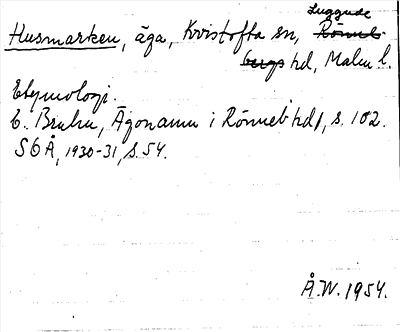 Luggude
Husmarken, äga, Kvistofta sn, Rönne-
bergs hd, Malm. l.
Etymologi.
E. Bruhn, Ägonamn i Rönneb. hd, s. 102.
SOÅ, 1930-31, s. 54.
Å.W. 1954.